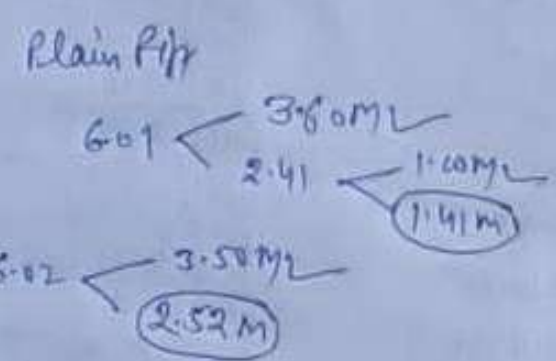 Plain Pipe
6.01 3.60M
2.41 1.00M
1.41M
6.02 3.50M
2.52M